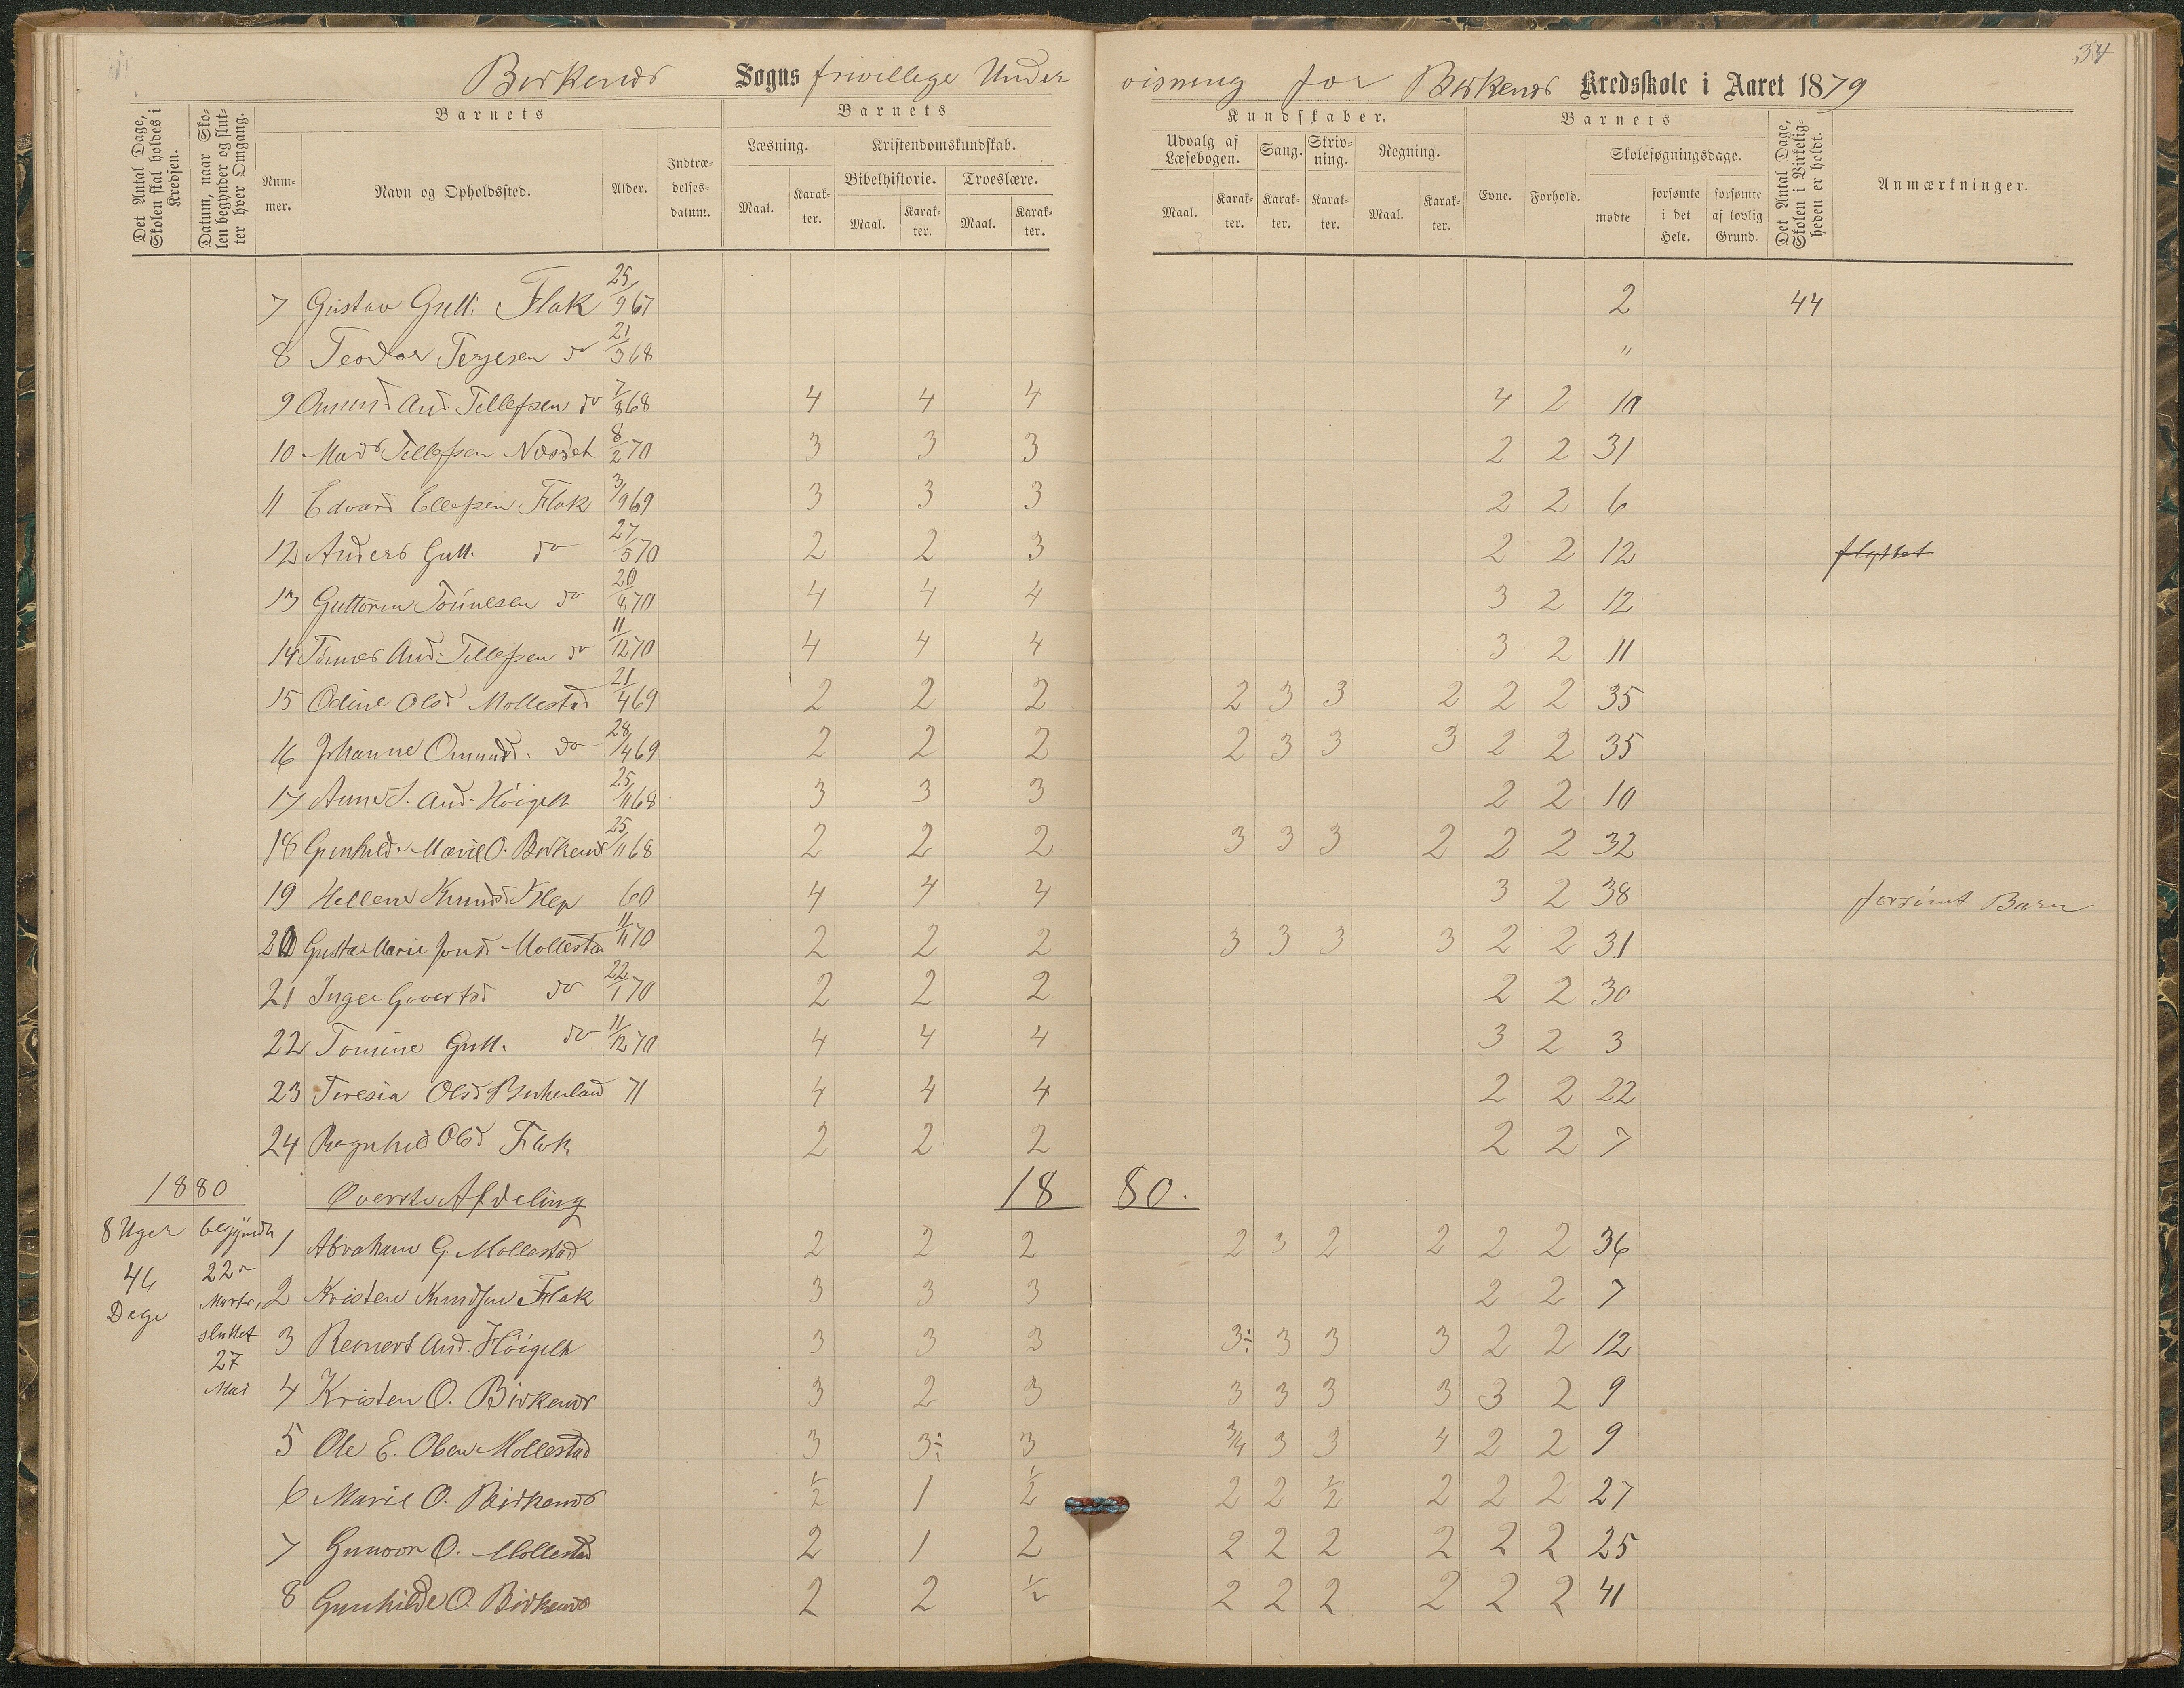 34
Birkenes Sogns frivillige Undervisning for Birkenes Kredsskole i Aaret 1879
Det Antal Dage, Skolen skal holdes i Kredsen.
Datum, naar Skolen begynder og slutter hver Omgang.
Barnets
Nummer.
Navn og Opholdssted.
Alder.
Indtrædelsesdatum.
Barnets
Læsning.
Maal.
Karakter.
Kristendomskundskab.
Bibelhistorie.
Maal.
Karakter.
Troeslære.
Maal.
Karakter.
Kundskaber.
Udvalg af Læsebogen.
Maal.
Karakter.
Sang.
Karakter.
Skrivning.
Karakter.
Regning.
Maal.
Karakter.
Barnets
Evne.
Forhold.
Skolesøgningsdage.
mødte
forsømte i det Hele.
forsømte af lovlig Grund.
Det Antal Dage, Skolen i Virkeligheden er holdt.
Anmærkninger.
7 Gustav Gutt: Flak 25/9 67 2 44
8 Teodor Terjesen do 21/3 68 "
9 Omund And. Tellefsen do 7/8 68 4 4 4 4 2 10
10 Mads Tellefsen 8/2 70 3 3 3 2 2 31
11 Edvard Ellefsen Flak 3/9 69 3 3 3 2 2 6
12 Anders Gutt. do 27/5 70 2 2 3 2 2 12 flyttet
13 Guttorm Tönnesen do 20/8 70 4 4 4 3 2 12
14 Tönnes And: Tellefsen do 11/12 70 4 4 4 3 2 11
15 Odine Olsd Mollestad 21/4 69 2 2 2 2 3 3 2 2 2 35
16 Johanne Omunds. do 28/4 69 2 2 2 2 3 3 3 2 2 35
17 Anne S. And. Höigelt 25/11 68 3 3 3 2 2 10
18 Gunhild Marie O. Birkenes 25/11 68 2 2 2 3 3 3 2 2 2 32
19 Hellene Knudsd Klep 60 4 4 4 3 2 38 forsömt Barn
20 Gusta Marie Jonsd Mollestad 11/11 70 2 2 2 3 3 3 3 2 2 31
21 Inger Govertsd do 22/1 70 2 2 2 2 2 30
22 Tomine Gutt. do 11/12 70 4 4 4 3 2 3
23 Teresia Olsd Birkeland 71 4 4 4 2 2 22
24 Ragnhild Olsd Flak 2 2 2 2 2 7
1880 Øverste Afdeling 1880.
8 Uger
46
Dage
begyndte
22de
Marts,
sluttet
27
Mai
1 Abraham G. Mollestad 2 2 2 2 3 2 2 2 2 36
2 Kristen Knudsen Flak 3 3 3 2 2 7
3 Reinert And. Höigelt 3 3 3 3÷ 3 3 3 2 2 12
4 Kristen O. Birkenes 3 2 3 3 3 3 3 3 2 9
5 Ole E. Olsen Mollestad 3 3÷ 3 3/4 3 3 4 2 2 9
6 Marie O. Birkenes 1/2 1 1/2 2 2 1/2 2 2 2 27
7 Gunvor O. Mollestad 2 1 2 2 2 2 2 2 2 25
8 Gunhilde O. Birkenes 2 2 1/2 2 2 2 2 2 2 41